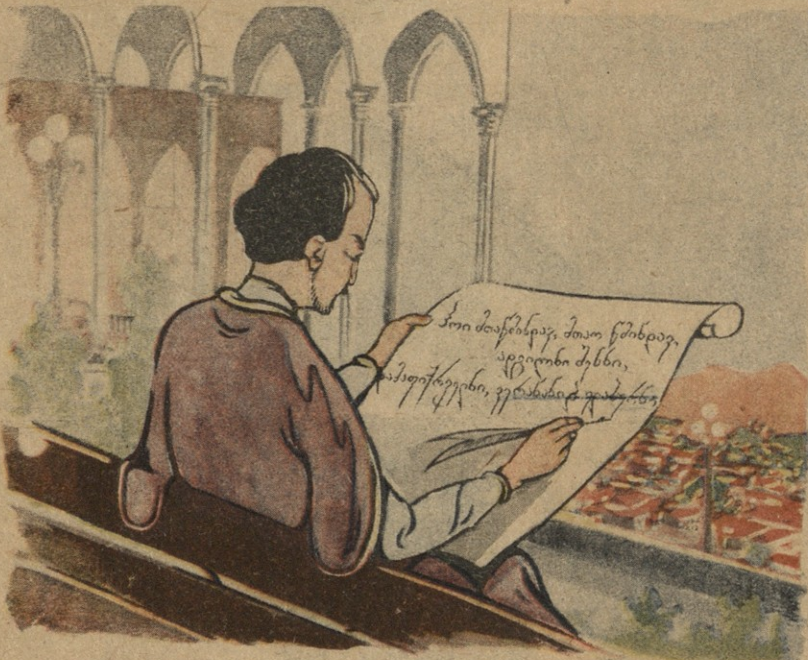 ჰოი მთაწმინდავ, მთაო წმინდავ,
ადგილნი შენნი,
დამაფიქრველნი, ვერანანი და უდაბურნი